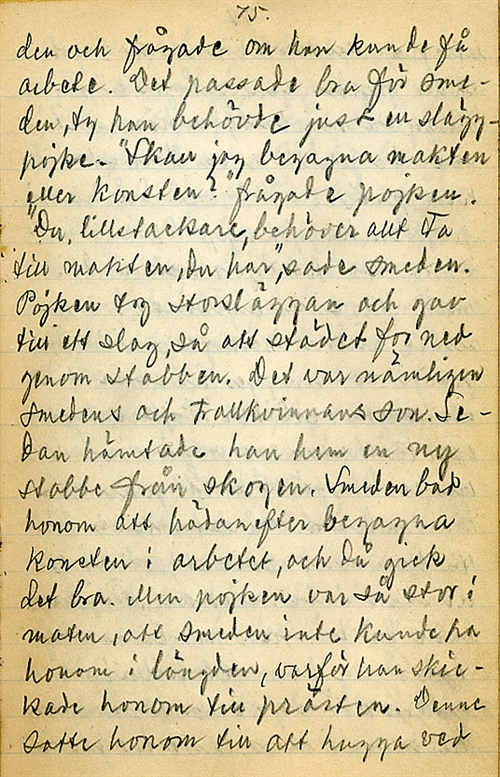 75.
den och frågade om han kunde få
arbete. Det passade bra för sme-
den, ty han behövde just en slägg-
pojke. "Skall jag begagna makten
eller konsten?" frågade pojken.
"Du, lillstackare, behöver allt ta
till makten, du har", sade smeden.
Pojken tog storsläggan och gav
till ett slag, så att städet for ned
genom stabben. Det var nämligen
smedens och Trollkvinnans son. Se-
dan hämtade han hem en ny
stabbe från skogen. Smeden bad
honom att hädanefter begagna
konsten i arbetet, och då gick
det bra. Men pojken var så stor i
maten, att smeden inte kunde ha
honom i längden, varför han skic-
kade honom till prästen. Denne
satte honom till att hugga ved